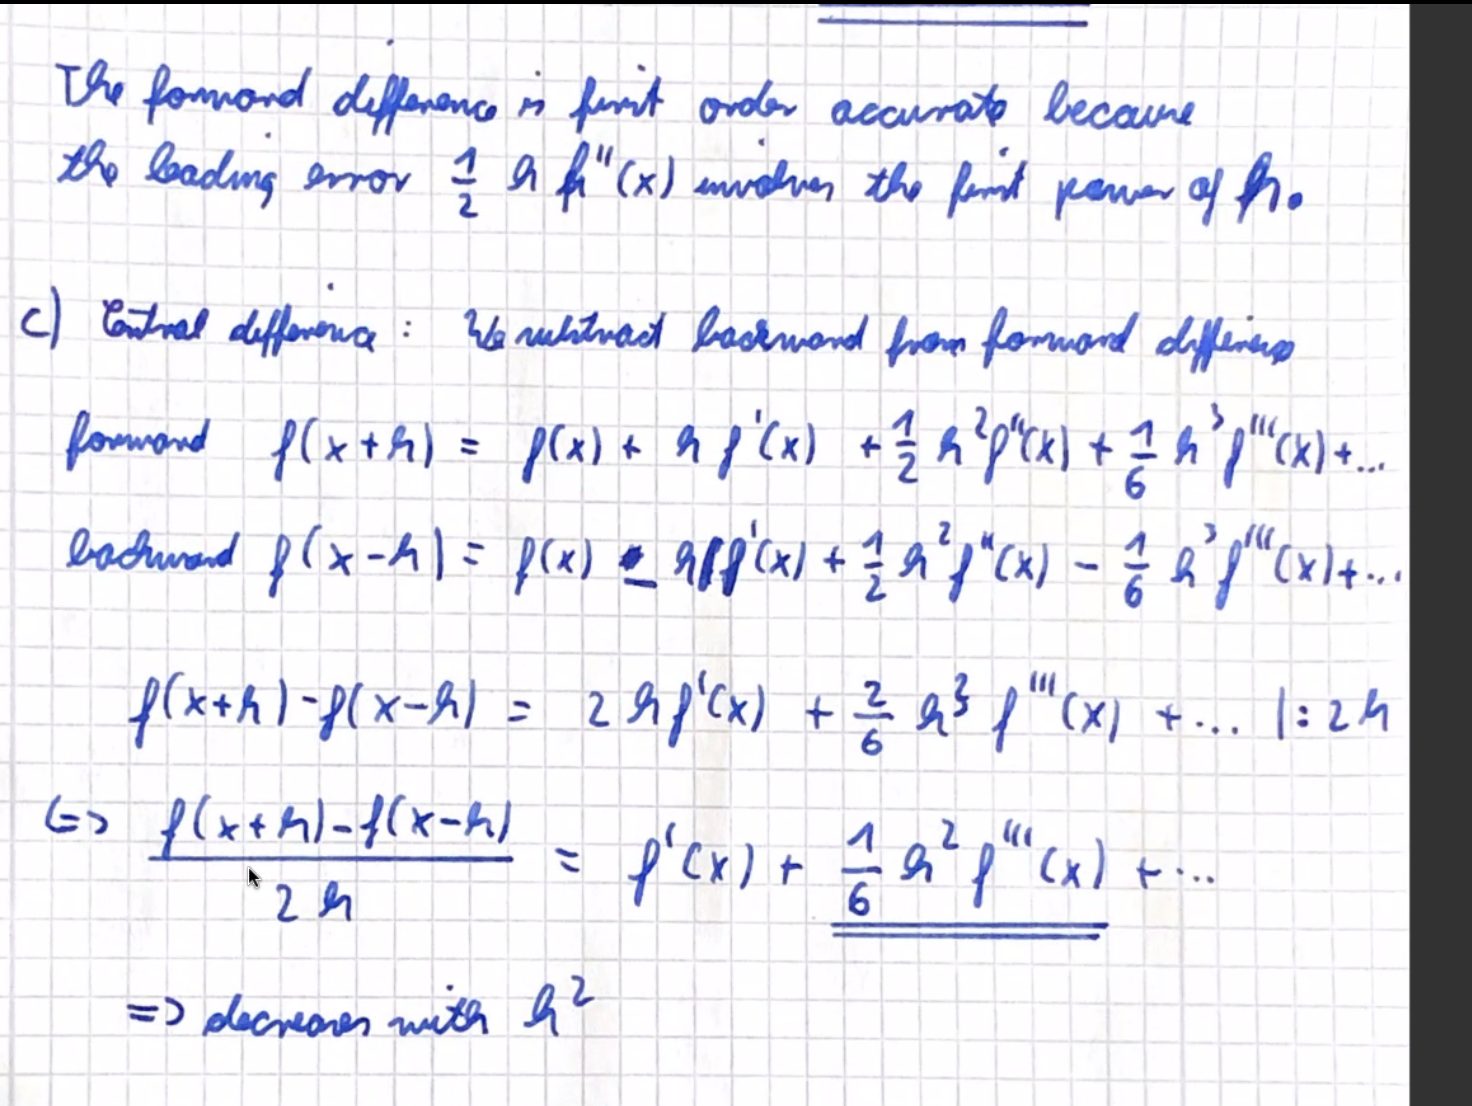 The forward difference is first order accurate because
the leading error 1/2 h f''(x) involves the first power of h.
c) Central difference: We subtract backward from forward difference
forward f(x+h) = f(x) + h f'(x) + 1/2 h² f''(x) + 1/6 h³ f'''(x) + ...
backward f(x-h) = f(x) - h f'(x) + 1/2 h² f''(x) - 1/6 h³ f'''(x) + ...
f(x+h) - f(x-h) = 2 h f'(x) + 2/6 h³ f'''(x) + ... |: 2h
<=> (f(x+h) - f(x-h)) / (2h) = f'(x) + 1/6 h² f'''(x) + ...
=> decreases with h²